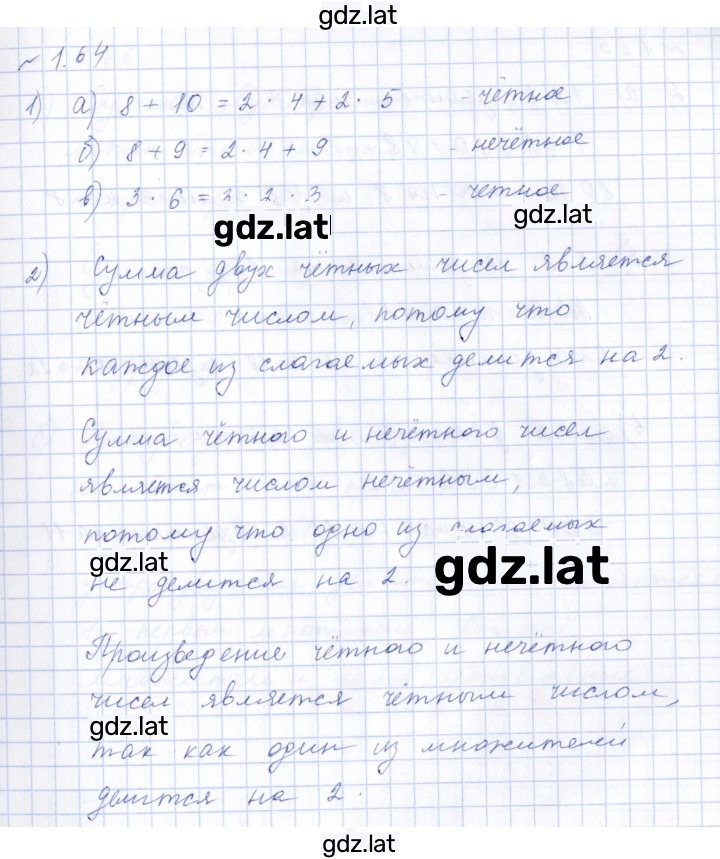 gdz.lat
~ 1.64
1) а) 8 + 10 = 2 · 4 + 2 · 5 - чётное
б) 8 + 9 = 2 · 4 + 9 - нечётное
в) 3 · 6 = 3 · 2 · 3 - четное
gdz.lat gdz.lat
2) Сумма двух чётных чисел является
чётным числом, потому что
каждое из слагаемых делится на 2.
Сумма чётного и нечётного чисел
является числом нечётным,
потому что одно из слагаемых
gdz.lat gdz.lat
не делится на 2.
Произведение чётного и нечётного
чисел является чётным числом,
gdz.lat
так как один из множителей
делится на 2.
gdz.lat